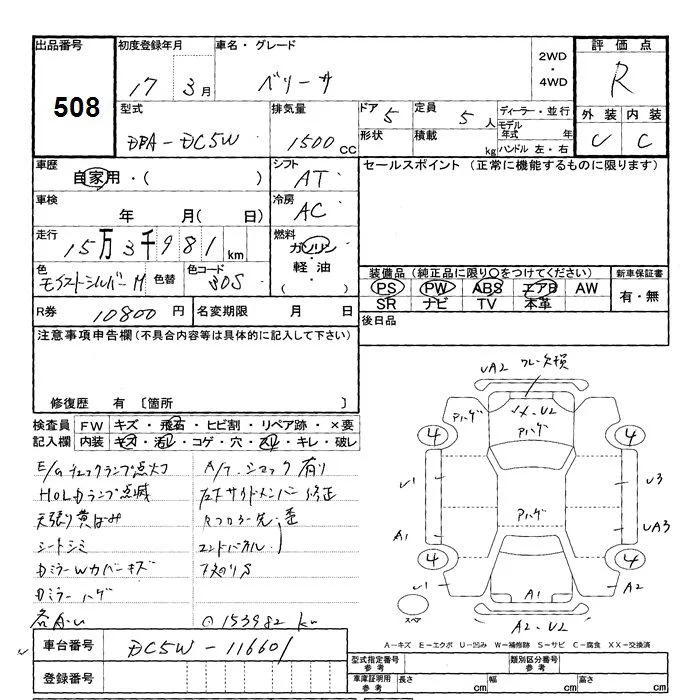 出品番号
508
初度登録年月
17 3月
車名・グレード
ベリーサ
2WD
・
4WD
評価点
R
外装 内装
C
型式
DBA-DC5W
排気量
1500cc
ドア 5
形状
定員 5人
積載 kg
ディーラー・並行
モデル年式 年
ハンドル 左・右
車歴
自家用・( )
シフト
AT
セールスポイント(正常に機能するものに限ります)
車検
年 月( 日)
冷房
AC
走行
15万3千981km
燃料
ガソリン
・
軽油
( )
色
色替
色コード
30S
装備品(純正品に限り○をつけてください)
PS PW ABS エアB AW
SR ナビ TV 本革
新車保証書
有・無
R券 10800円
名変期限 月 日
後日品
注意事項申告欄(不具合内容等は具体的に記入して下さい)
修復歴 有 〔箇所 〕
検査員記入欄
FW キズ・飛石・ヒビ割・リペア跡・×要
内装 キズ・汚レ・コゲ・穴・スレ・キレ・破レ
E/Gチェックランプ点灯
HOLDランプ点滅
天張り黄ばみ
シートシミ
DミラーWカバーキズ
Dミラーハゲ
A/T.ショック有り
左Fサイドメンバー修正
エンドパネル
◎153982km
UA2
Pハゲ
Pハゲ
Pハゲ
4
4
4
4
U1
U3
A1
UA3
U1
A1
A2
A2-U2
スペア
A-キズ E-エクボ U-凹み W-補修跡 S-サビ C-腐食 XX-交換済
車台番号
DC5W-116601
登録番号
型式指定番号 参考
類別区分番号 参考
車庫証明用 参考
長さ cm
幅 cm
高さ cm